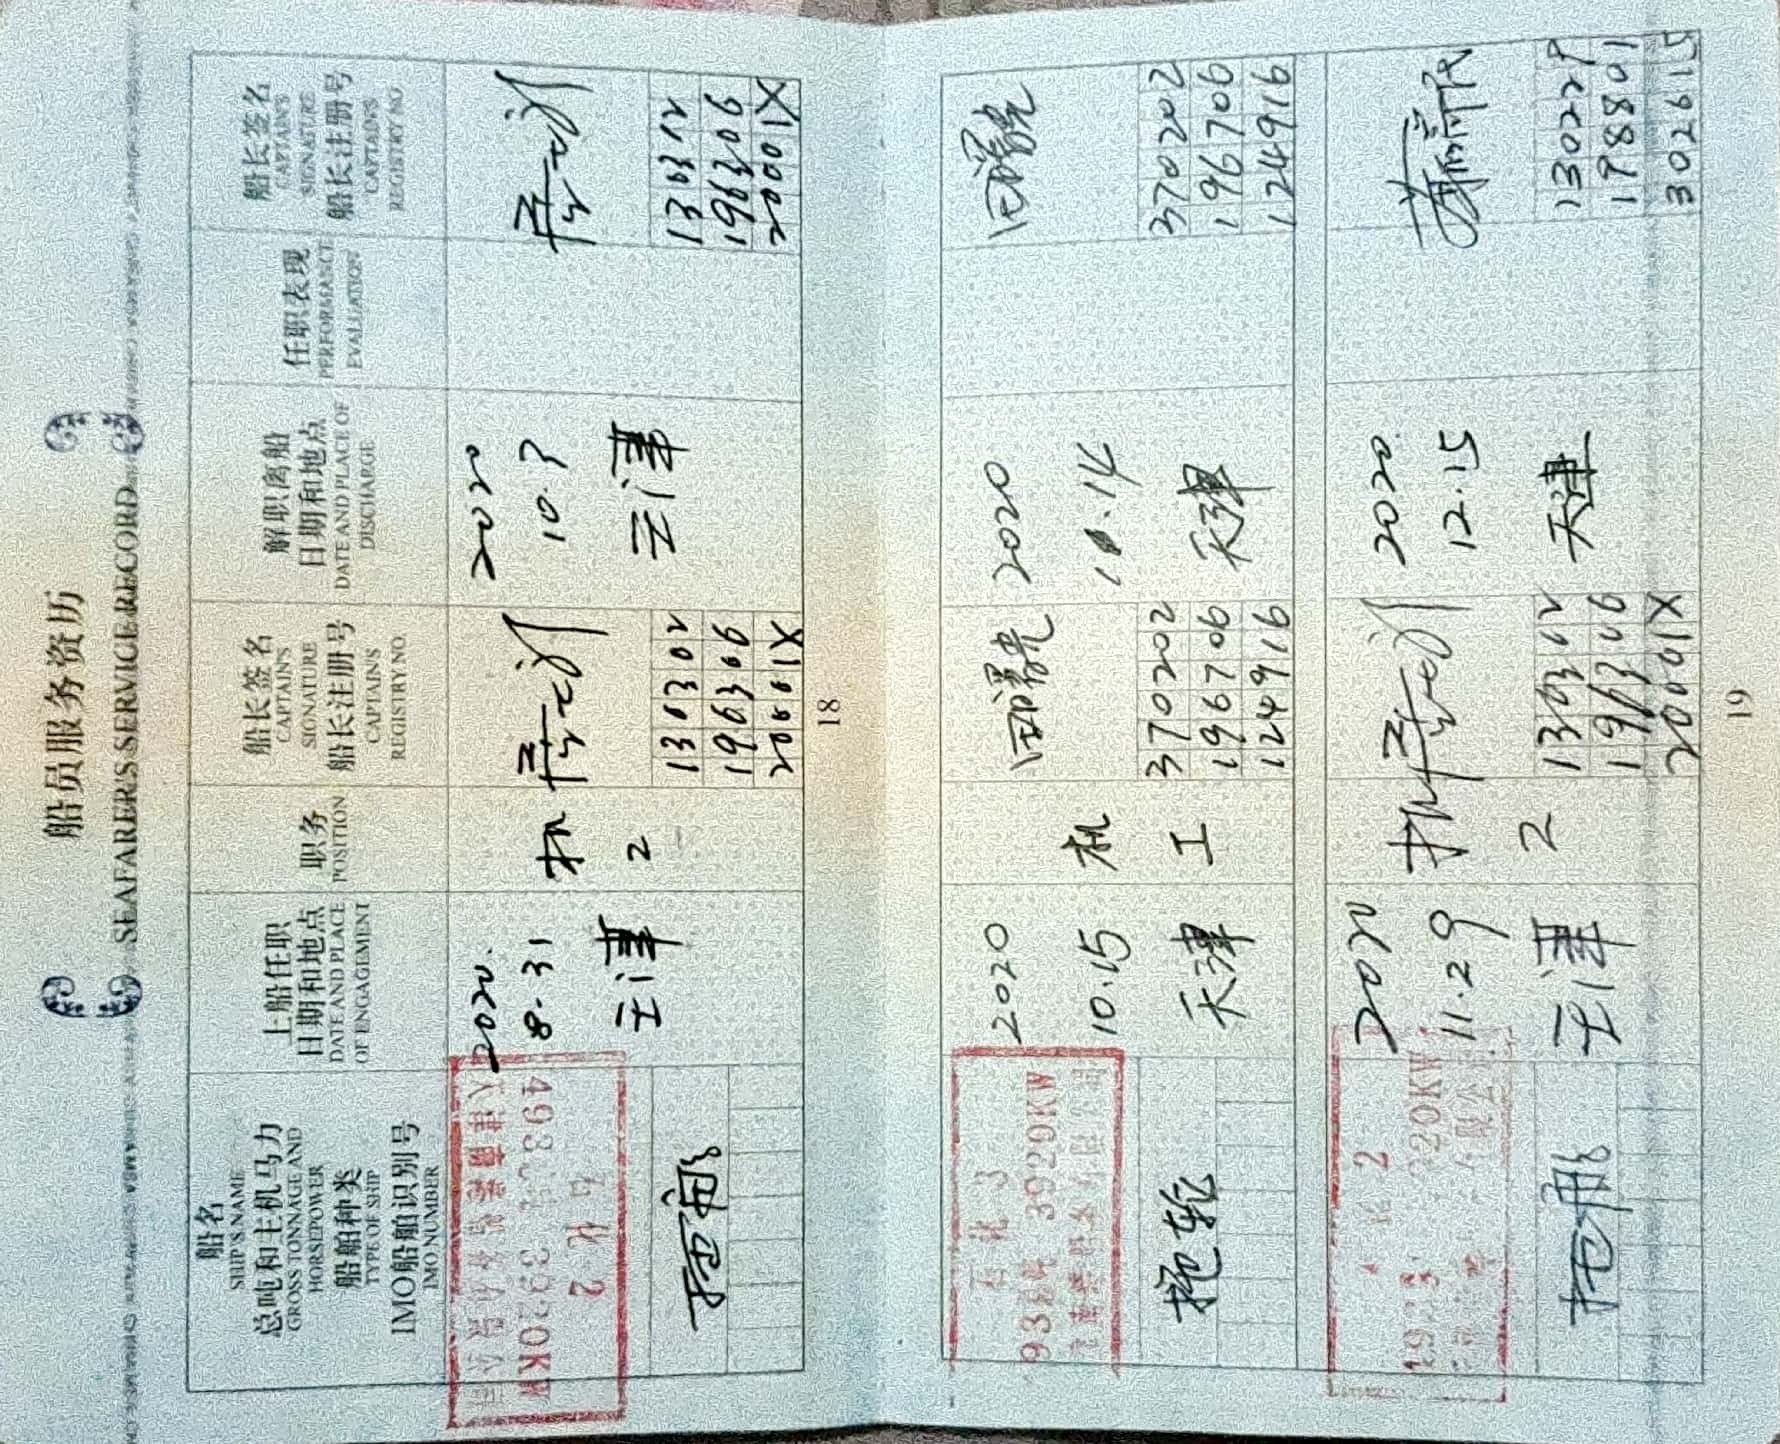 船员服务资历
SEAFARER'S SERVICE RECORD
船名
SHIP'S NAME
总吨和主机马力
GROSS TONNAGE AND
HORSEPOWER
船舶种类
TYPE OF SHIP
IMO船舶识别号
IMO NUMBER
上船任职
日期和地点
DATE AND PLACE
OF ENGAGEMENT
职务
POSITION
船长签名
CAPTAIN'S
SIGNATURE
船长注册号
CAPTAIN'S
REGISTRY NO
解职离船
日期和地点
DATE AND PLACE OF
DISCHARGE
任职表现
PERFORMANCE
EVALUATION
船长签名
CAPTAIN'S
SIGNATURE
船长注册号
CAPTAIN'S
REGISTRY NO
2
拖船
2020.
8.31
天津
机
2
130302
196306
20001X
2020
天津
20001X
18
3
3920KW
拖轮
2020
10.15
天津
机
工
370202
196706
124916
2020
天津
370202
196706
124916
2
拖船
2020
11.29
天津
机
2
130302
196306
20001X
2020
12.15
天津
130229
198801
302615
19